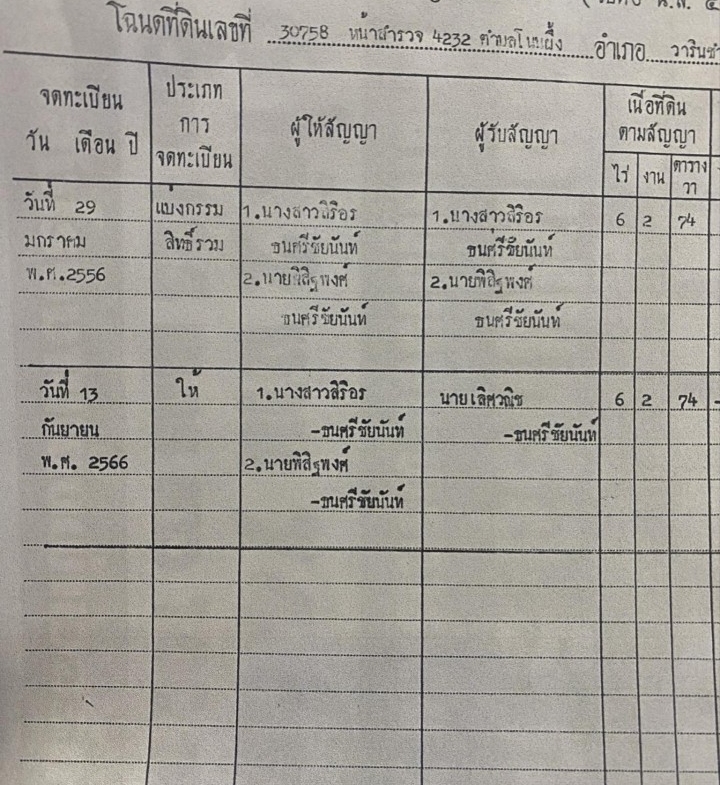 โฉนดที่ดินเลขที่ 30758 หน้าสำรวจ 4232 ตำบลโนนผึ้ง อำเภอ วารินชำ
จดทะเบียน วัน เดือน ปี
ประเภท การ จดทะเบียน
ผู้ให้สัญญา
ผู้รับสัญญา
เนื้อที่ดิน ตามสัญญา
ไร่ งาน ตาราง วา
วันที่ 29 แบ่งกรรม 1.นางสาวสิริอร 1.นางสาวสิริอร 6 2 74
มกราคม สิทธิ์รวม ธนศรีชัยนันท์ ธนศรีชัยนันท์
พ.ศ.2556 2.นายพิสิฐพงศ์ 2.นายพิสิฐพงศ์
ธนศรีชัยนันท์ ธนศรีชัยนันท์
วันที่ 13 ให้ 1.นางสาวสิริอร นายเลิศวณิช 6 2 74 -
กันยายน -ธนศรีชัยนันท์ -ธนศรีชัยนันท์
พ.ศ. 2566 2.นายพิสิฐพงศ์
-ธนศรีชัยนันท์